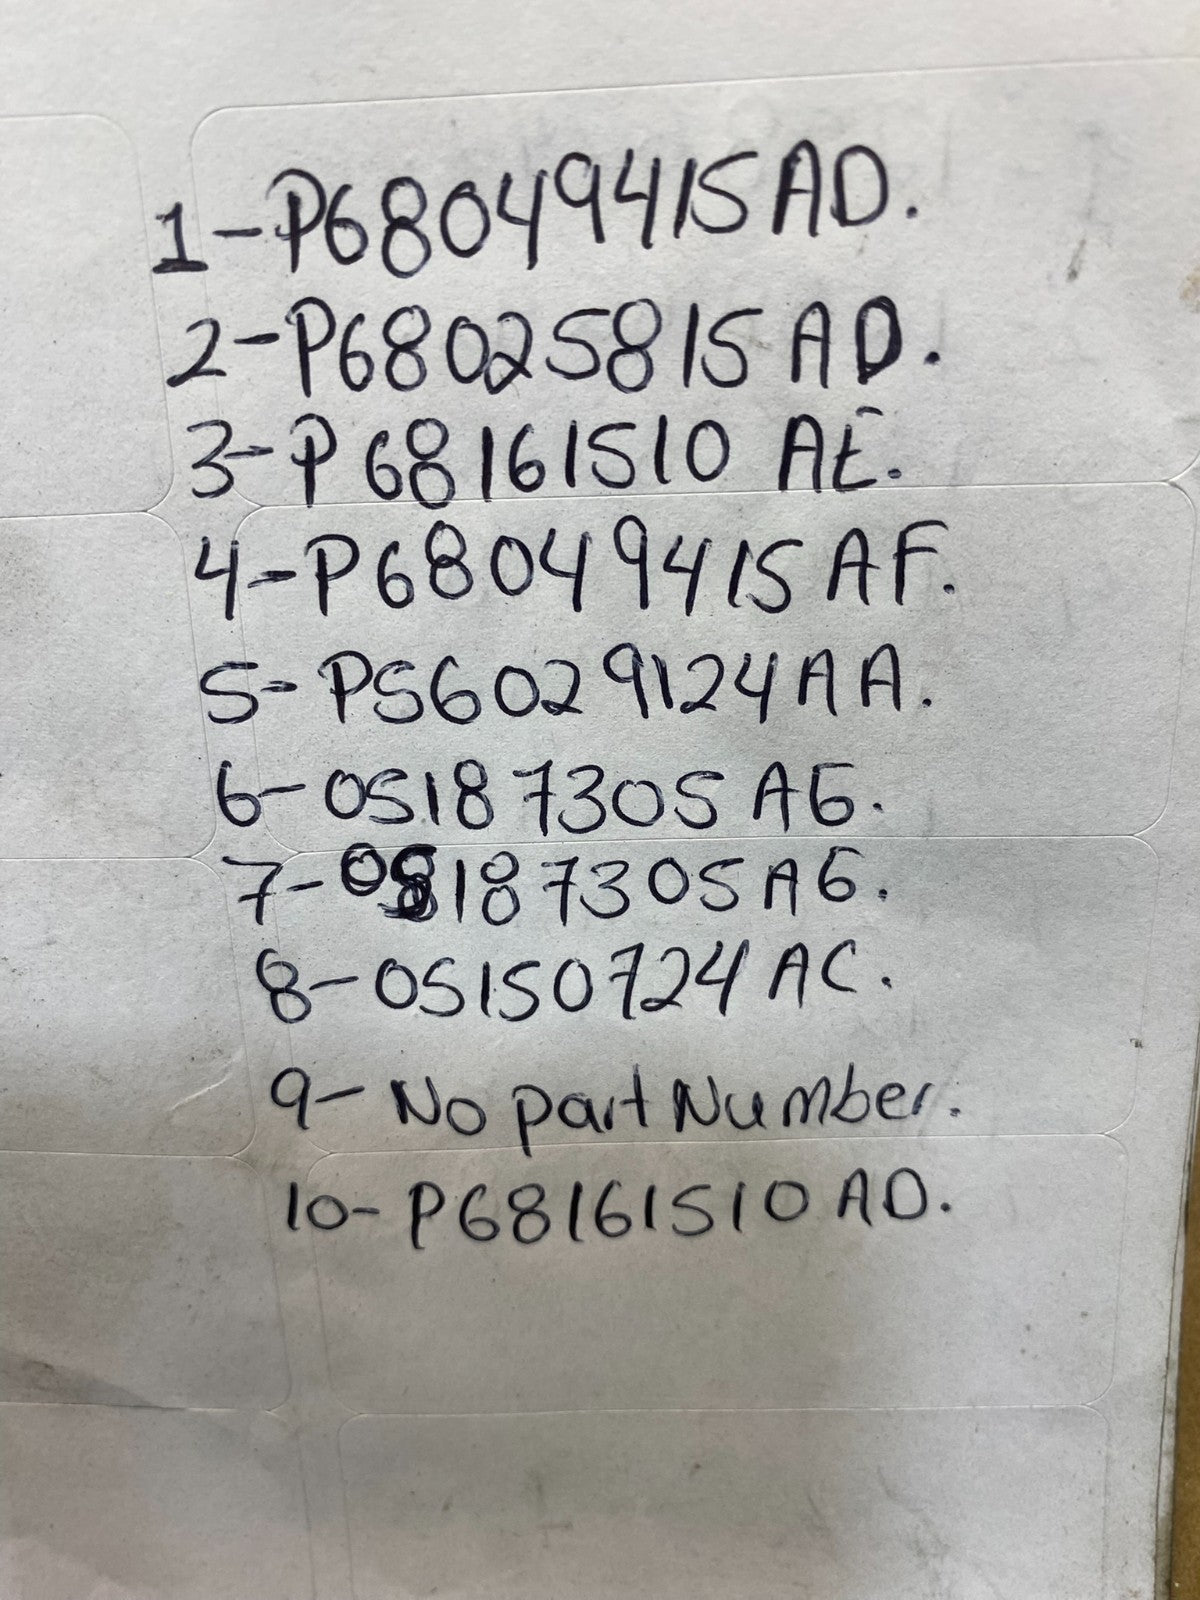 1-P68049415AD.
2-P68025815AD.
3-P68161510 AE.
4-P68049415AF.
5-P56029124AA.
6-05187305AG.
7-05187305AG.
8-05150724AC.
9-No part Number.
10-P68161510AD.